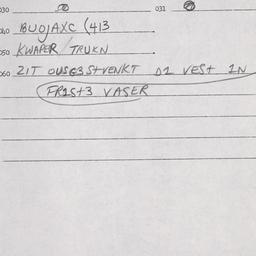 030 031
040 BUOJAXC (413
050 KWAPER / TRUKN
060 ZIT OUSG3StVENKT D1 VESt IN
FRISt3 VASER